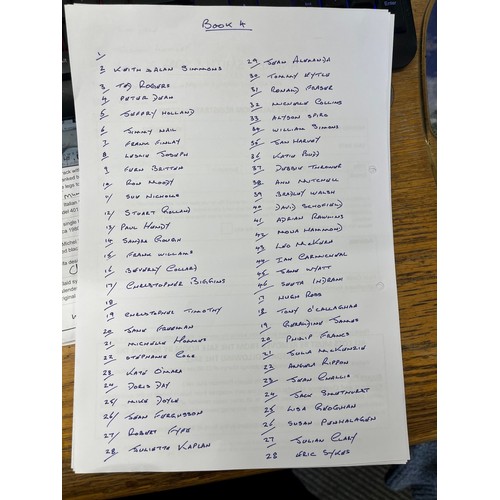 BOOK 4
1
2 KEITH & ALAN SIMMONS
3 TED ROGERS
4 PETER DEAN
5 JEFFRY HOLLAND
6 JIMMY NAIL
7 FRANK FINLAY
8 LESLIE JOSEPH
9 FERN BRITTEN
10 RON MOODY
11 SUE NICHOLS
12 STUART
13 PAUL HENDY
14 SANDRA
15 FRANK WILLIAMS
16 BEVERLY COLLARD
17 CHRISTOPHER BIGGINS
18
19 CHRISTOPHER TIMOTHY
20 JANE FREEMAN
21 MICHELLE HOLMES
22 STEPHANIE COLE
23 KATE O'MARA
24 DORIS DAY
25 MIKE DOYLE
26 JEAN FERGUSSON
27 ROBERT FYFE
28 JULIETTE KAPLAN
29 JEAN
30 TOMMY EYTLE
31 RONALD FRASER
32 MICHELLE COLLINS
33 ALYSON SPIRO
34 WILLIAM SIMONS
35 IAN HARVEY
36 KATIE BUDD
37 DEBBIE THROWER
38 ANN MITCHELL
39 BRADLEY WALSH
40 DAVID SCHOFIELD
41 ADRIAN RAWLINS
42 MONA HAMMOND
43 LEO McKERN
44 IAN CARMICHEAL
45 JANE WYATT
46 SEETA INDRANI
17 HUGH ROSS
18 TONY O'CALLAGHAN
19 GERALDINE JAMES
20 PHILIP FRANCS
21 JULIA McKENZIE
22 ANGELA RIPPON
23 JEAN CHALLIS
24 JACK SMETHURST
25 LISA GEOGHAN
26 SUSAN PENHALAGEN
27 JULIAN CLARY
28 ERIC SYKES